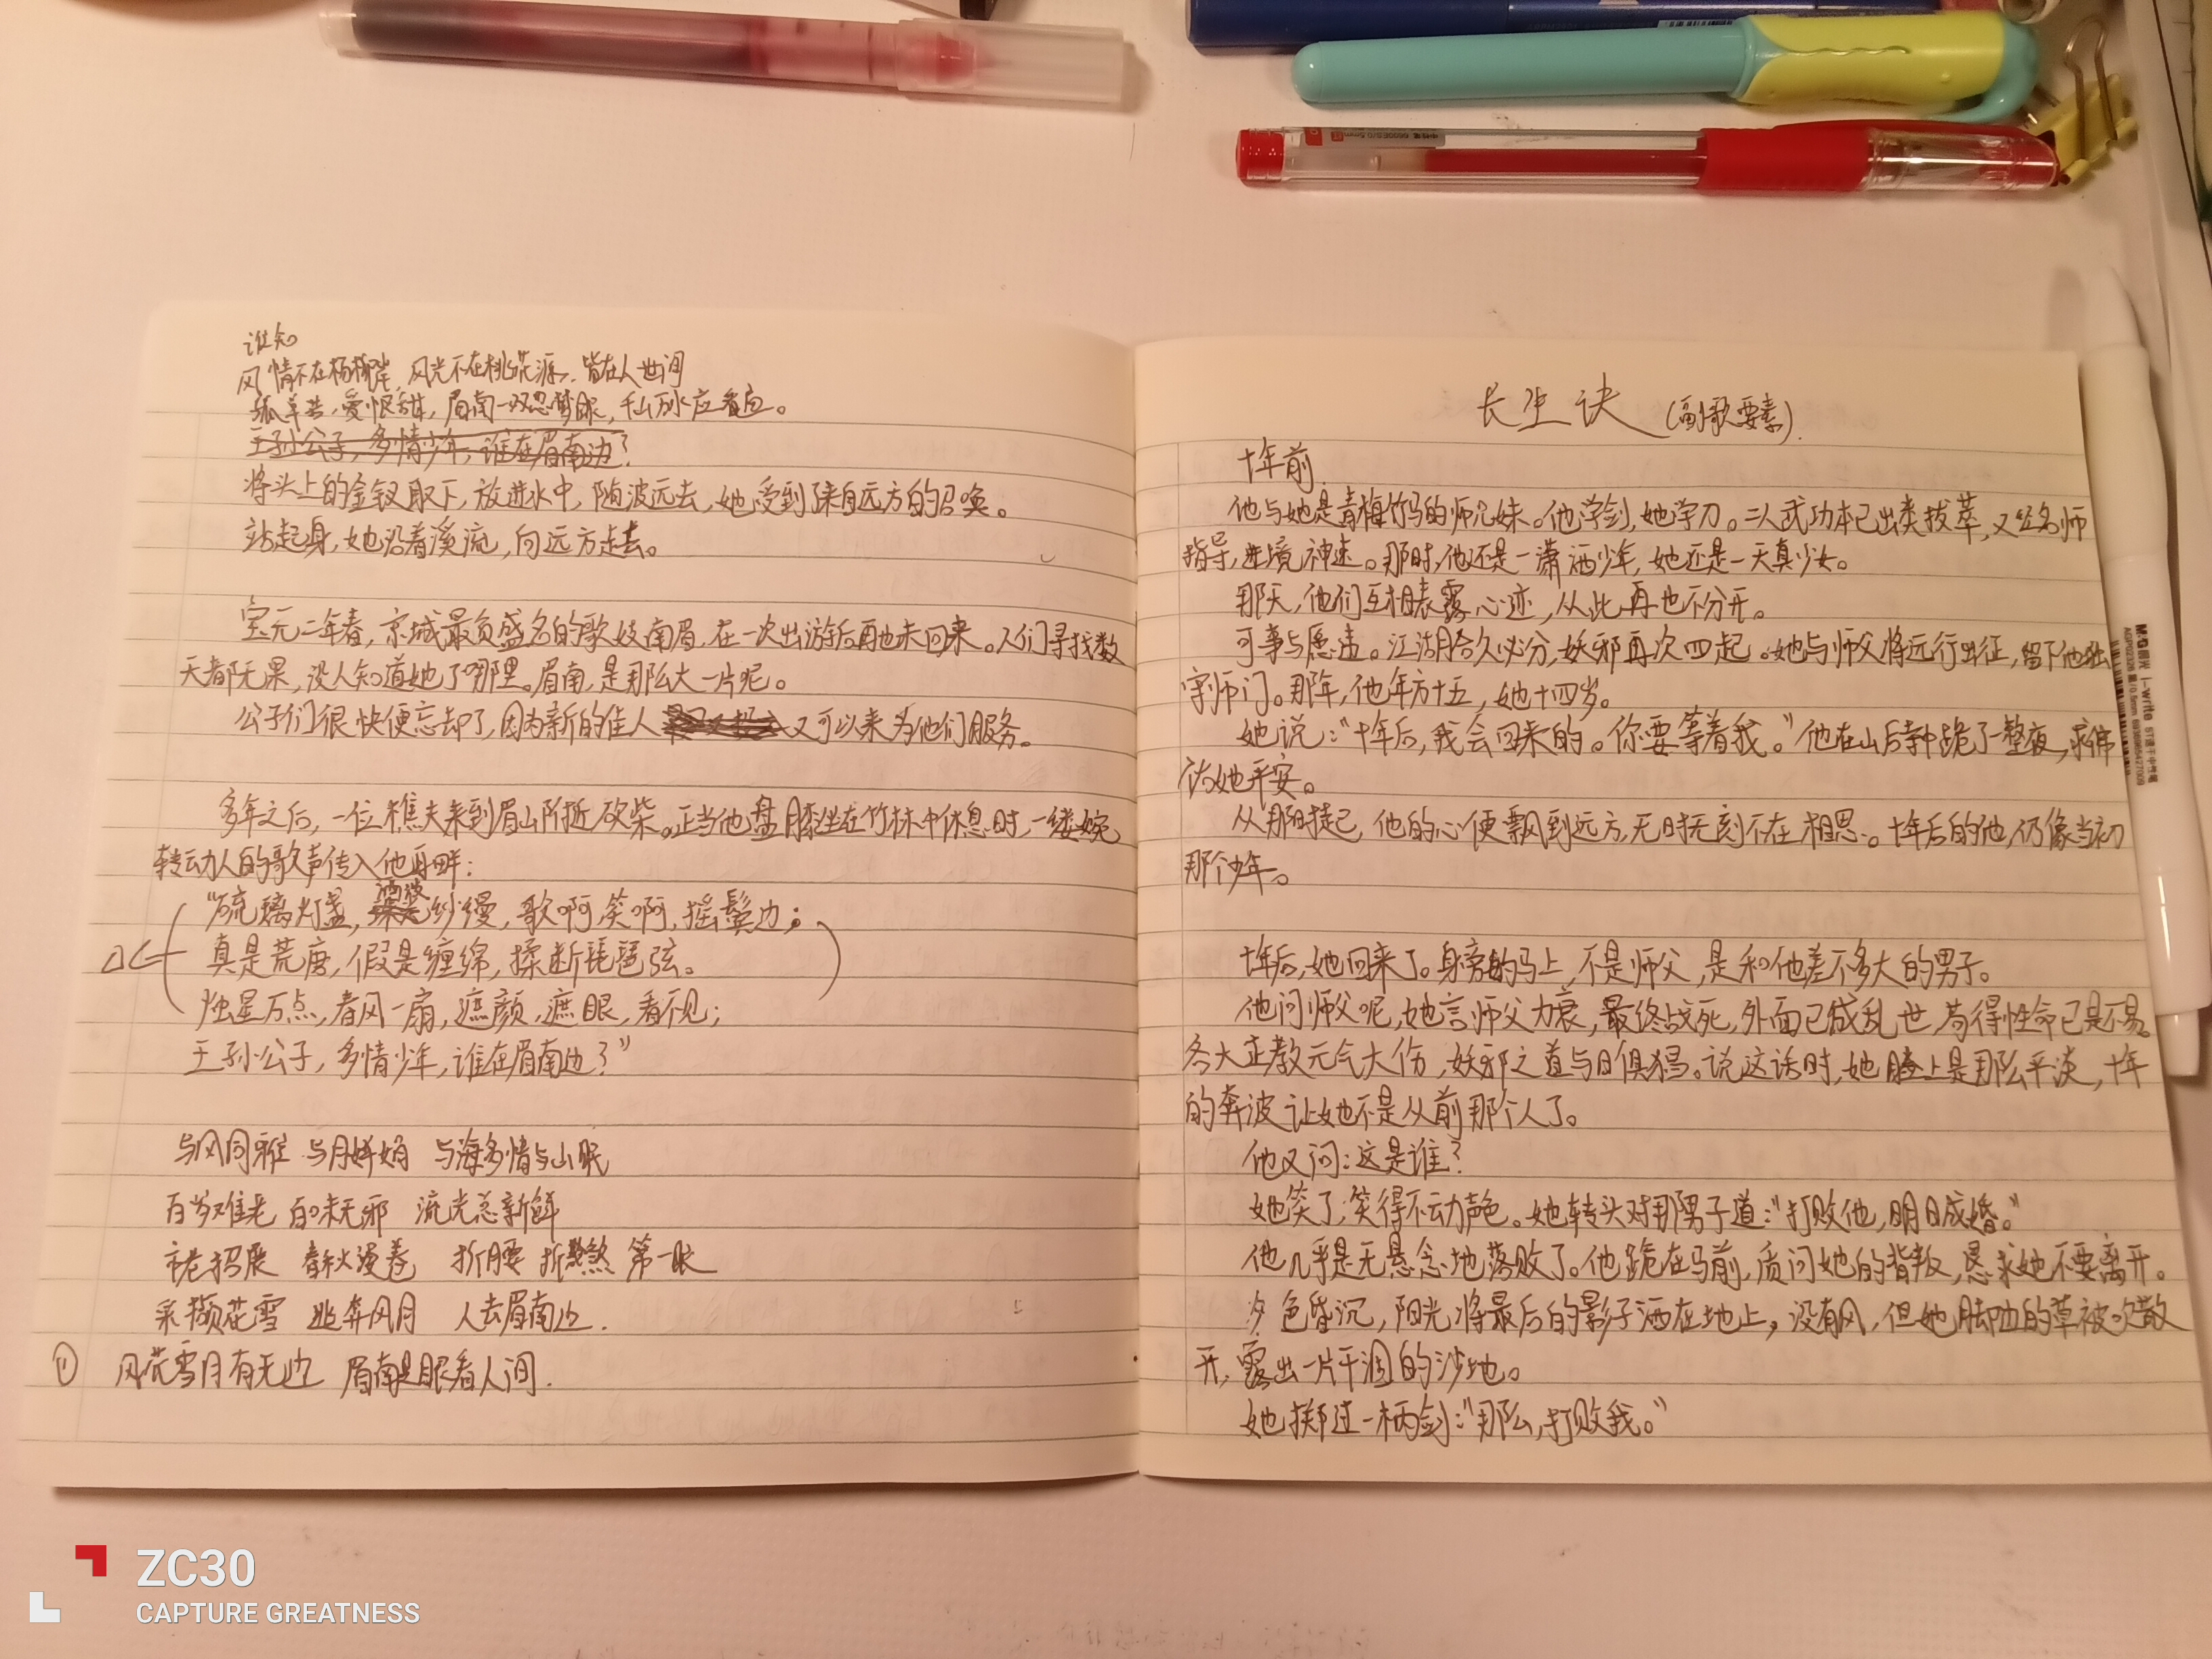 谁知
风情不在杨柳岸,风光不在桃花源,皆在人世间
孤单苦,爱恨甜,眉南一双忽梦眼,千山万水应看应。
王孙公子,多情少年,谁在眉南边?
将头上的金钗取下,放进水中,随波远去,她受到了来自远方的召唤。
站起身,她沿着溪流,向远方走去。
宝元二年春,京城最负盛名的歌妓南眉,在一次出游后再也未回来。人们寻找数
天都无果,没人知道她去了哪里。眉南,是那么大一片呢。
公子们很快便忘却了,因为新的佳人又可以来为他们服务。
多年之后,一位樵夫来到眉山附近砍柴。正当他盘膝坐在竹林中休息时,一缕婉
转动人的歌声传入他耳畔:
“琉璃灯盏,纱幔,歌啊,笑啊,摇鬓边;
真是荒唐,假是缠绵,揉断琵琶弦。
烛星万点,春风一扇,遮颜,遮眼,看不见;
王孙公子,多情少年,谁在眉南边?”
与风同雅 与月婵娟 与海多情与山眠
百岁难老 百味无邪 流光总新鲜
招展 春秋漫卷 折腰 折煞 第一眼
采撷花雪 逃奔风月 人去眉南边.
① 风花雪月有无边 眉南是眼看人间.
长生诀(副歌要素).
十年前
他与她是青梅竹马的师兄妹。他学剑,她学刀。二人武功本已出类拔萃,又经名师
指导,进境神速。那时,他还是一潇洒少年,她还是一天真少女。
那天,他们互相表露心迹,从此再也不分开。
可事与愿违。江湖合久必分,妖邪再次四起。她与师父将远行出征,留下他独
守师门。那年,他年方十五,她十四岁。
她说:“十年后,我会回来的。你要等着我。”他在山后寺中跪了一整夜,求佛
访她平安。
从那时起,他的心便飘到远方,无时无刻不在相思。十年后的他,仍像当初
那个少年。
十年后,她回来了。身旁的马上,不是师父,是和他差不多大的男子。
他问师父呢,她言师父力衰,最终战死,外面已成乱世,苟得性命已是不易。
各大正教元气大伤,妖邪之道与日俱猖。说这话时,她脸上是那么平淡,十年
的奔波让她不是从前那个人了。
他又问:这是谁?
她笑了,笑得不动声色。她转头对那男子道:“打败他,明日成婚。”
他几乎是无悬念地落败了。他跪在马前,质问她的背叛,恳求她不要离开。
夕色昏沉,阳光将最后的影子洒在地上,没有风,但她脚边的草被吹散
开,露出一片干涸的沙地。
她掷过一柄剑:“那么,打败我。”
M&G 晨光 i-Write
ZC30
CAPTURE GREATNESS